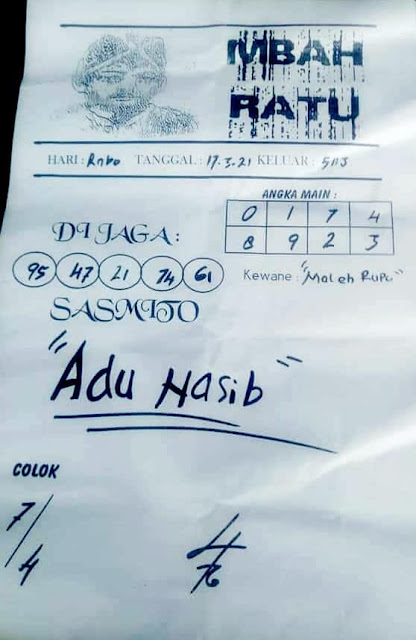 MBAH
RATU
HARI : Rabo TANGGAL : 17.3.21 KELUAR : 5113
ANGKA MAIN :
0 1 7 4
8 9 2 3
DI JAGA :
95 47 21 74 61
Kewane : "Maleh Rupo"
SASMITO
"Adu Nasib"
COLOK
7/4
4